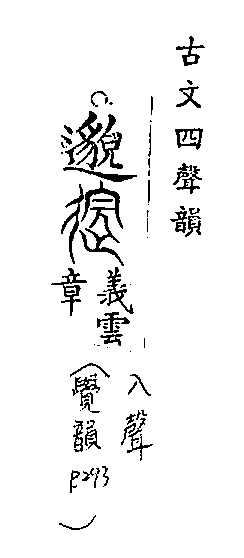 古文四聲韻
邈
義雲
章
入聲
(覺韻
P293)